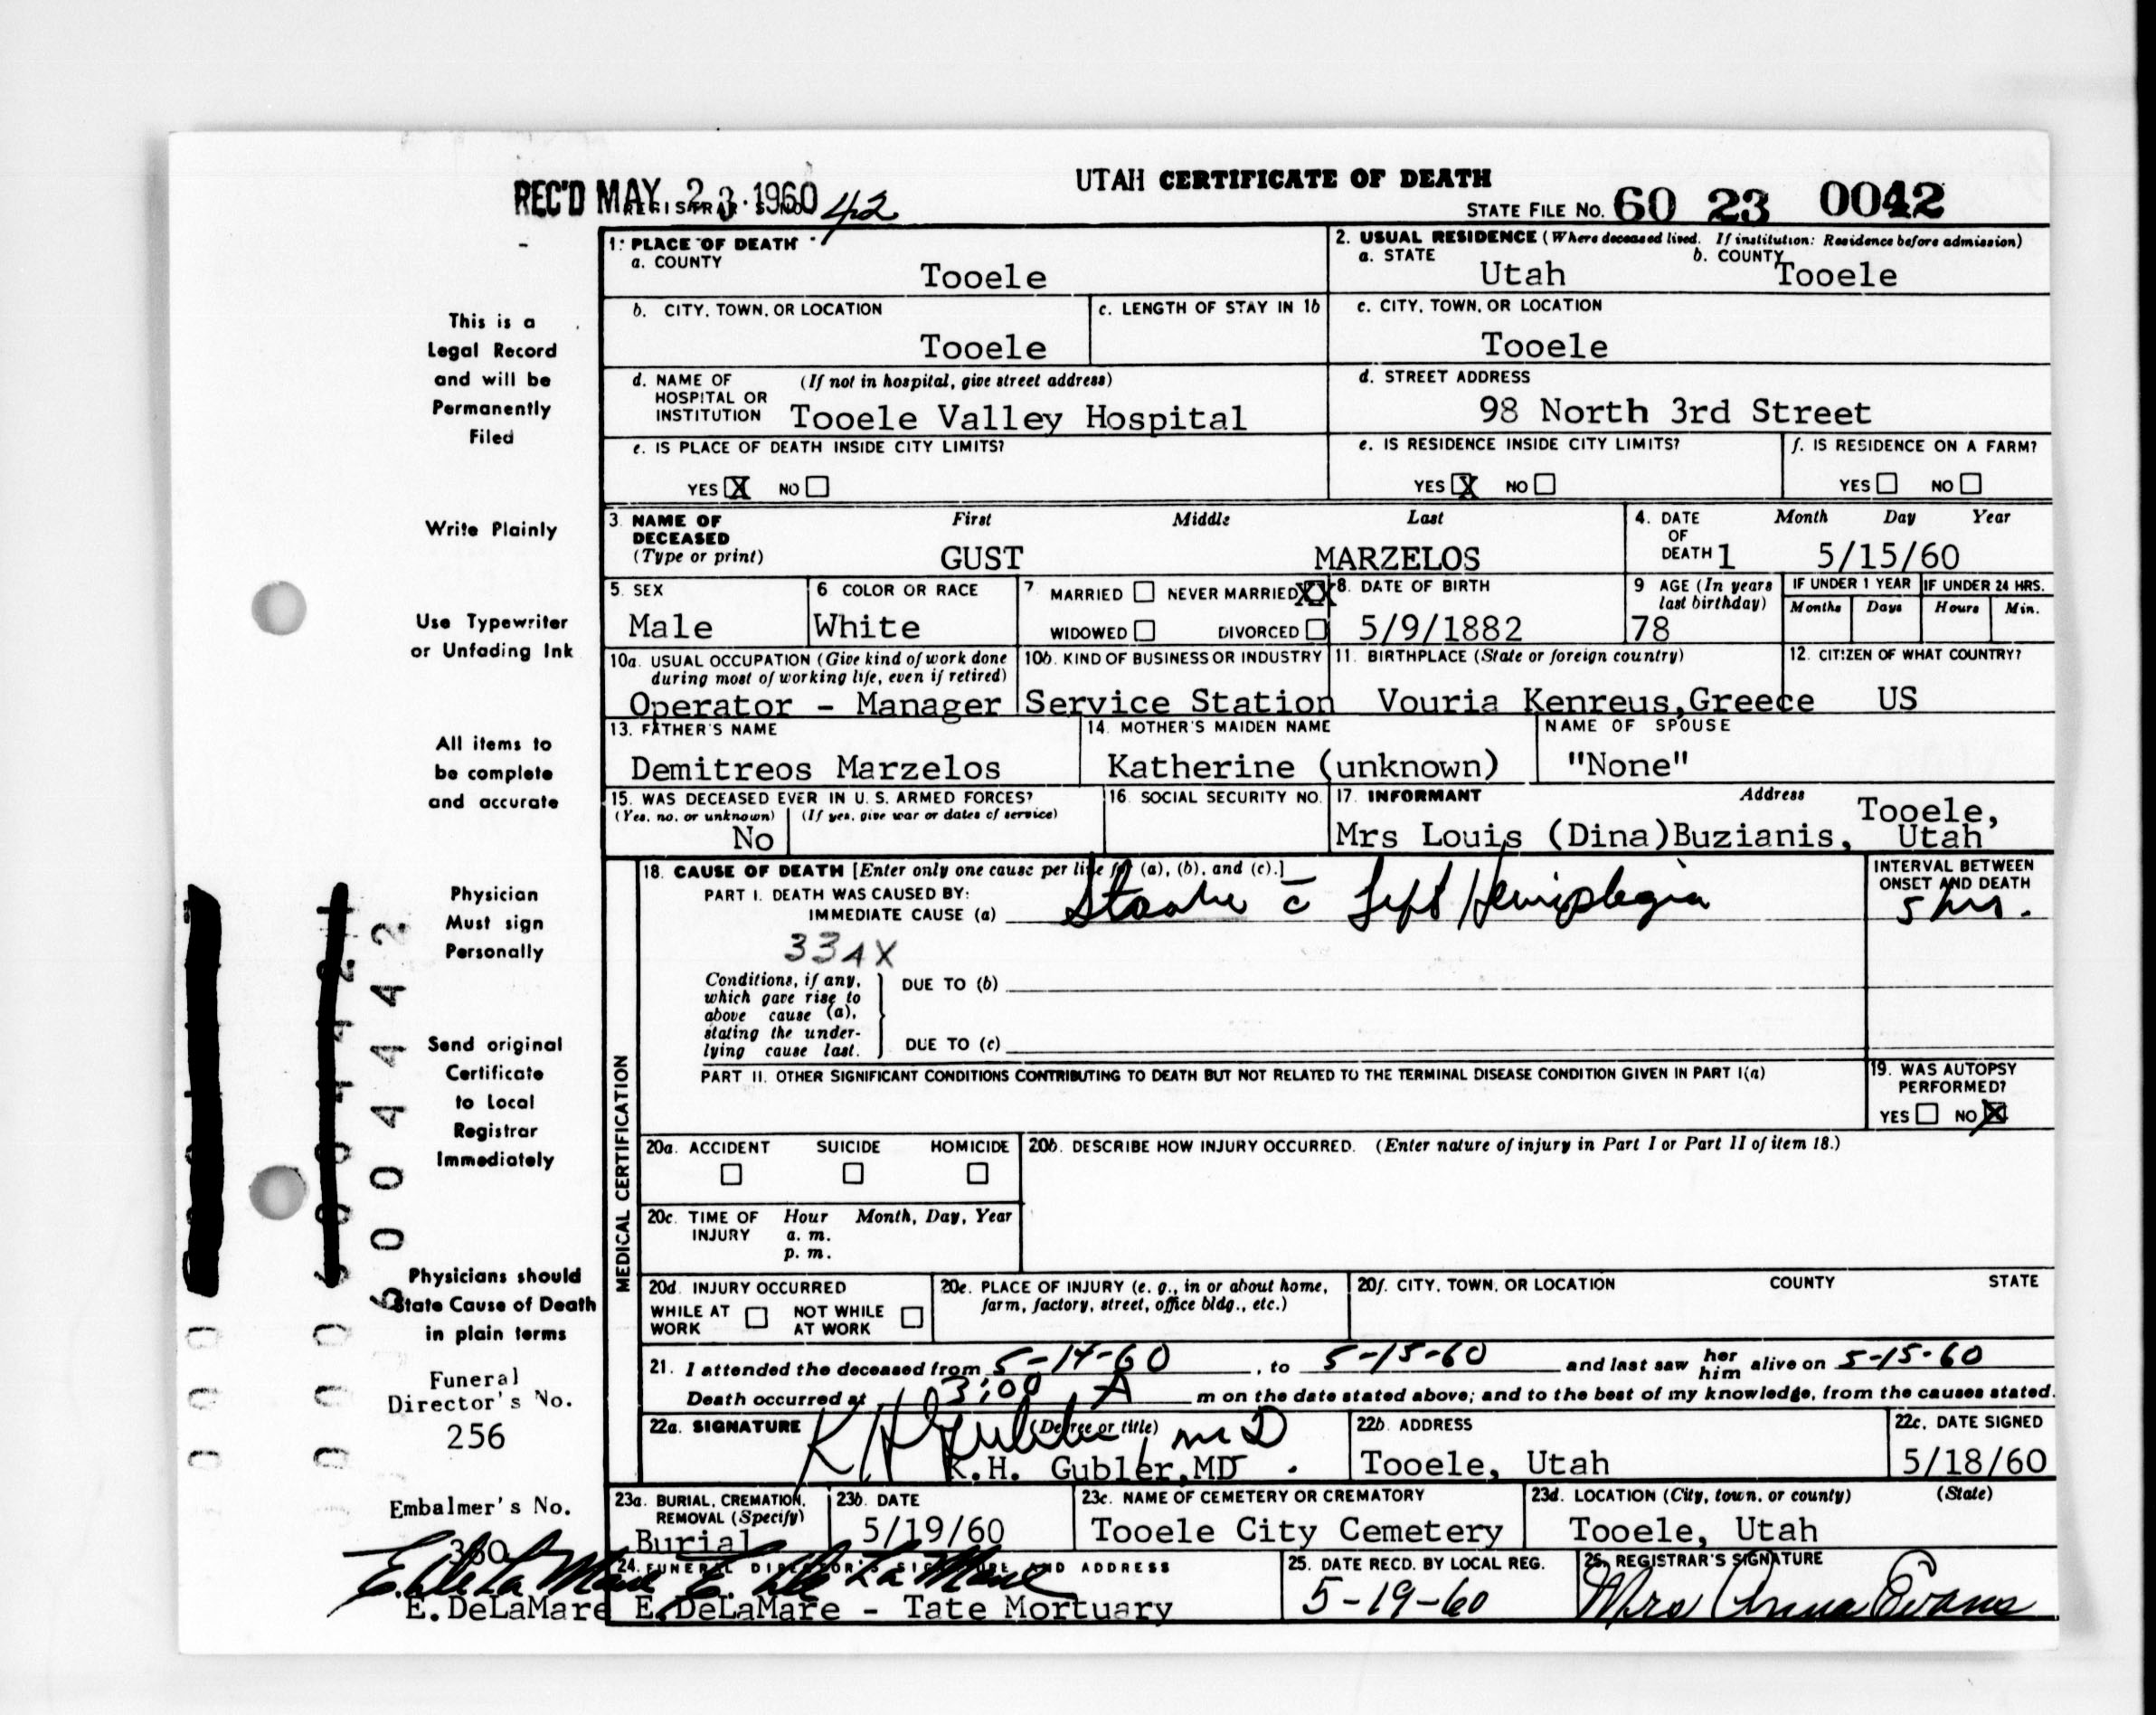 UTAH CERTIFICATE OF DEATH
REC'D MAY 23 1960
REGISTRAR'S NO. 42
STATE FILE No. 60 23 0042
1. PLACE OF DEATH
a. COUNTY
Tooele
2. USUAL RESIDENCE (Where deceased lived. If institution: Residence before admission)
a. STATE
Utah
b. COUNTY
Tooele
b. CITY, TOWN, OR LOCATION
Tooele
c. LENGTH OF STAY IN 1b
c. CITY, TOWN, OR LOCATION
Tooele
d. NAME OF HOSPITAL OR INSTITUTION
(If not in hospital, give street address)
Tooele Valley Hospital
d. STREET ADDRESS
98 North 3rd Street
e. IS PLACE OF DEATH INSIDE CITY LIMITS?
YES X NO
e. IS RESIDENCE INSIDE CITY LIMITS?
YES X NO
f. IS RESIDENCE ON A FARM?
YES NO
3. NAME OF DECEASED
(Type or print)
First Middle Last
GUST MARZELOS
4. DATE OF DEATH 1
Month Day Year
5/15/60
5. SEX
Male
6 COLOR OR RACE
White
7 MARRIED NEVER MARRIED XX
WIDOWED DIVORCED
8. DATE OF BIRTH
5/9/1882
9 AGE (In years last birthday)
78
IF UNDER 1 YEAR
Months Days
IF UNDER 24 HRS.
Hours Min.
10a. USUAL OCCUPATION (Give kind of work done during most of working life, even if retired)
Operator - Manager
10b. KIND OF BUSINESS OR INDUSTRY
Service Station
11. BIRTHPLACE (State or foreign country)
Vouria Kenreus,Greece
12. CITIZEN OF WHAT COUNTRY?
US
13. FATHER'S NAME
Demitreos Marzelos
14. MOTHER'S MAIDEN NAME
Katherine (unknown)
NAME OF SPOUSE
"None"
15. WAS DECEASED EVER IN U. S. ARMED FORCES?
(Yes, no, or unknown) (If yes, give war or dates of service)
No
16. SOCIAL SECURITY NO.
17. INFORMANT Address
Mrs Louis (Dina)Buzianis, Tooele, Utah
18. CAUSE OF DEATH [Enter only one cause per line for (a), (b), and (c).]
PART I. DEATH WAS CAUSED BY:
IMMEDIATE CAUSE (a) Stroke c̄ Left Hemiplegia
INTERVAL BETWEEN ONSET AND DEATH
5 hrs.
334X
Conditions, if any, which gave rise to above cause (a), stating the underlying cause last.
DUE TO (b)
DUE TO (c)
PART II. OTHER SIGNIFICANT CONDITIONS CONTRIBUTING TO DEATH BUT NOT RELATED TO THE TERMINAL DISEASE CONDITION GIVEN IN PART I(a)
19. WAS AUTOPSY PERFORMED?
YES NO X
MEDICAL CERTIFICATION
20a. ACCIDENT SUICIDE HOMICIDE
20b. DESCRIBE HOW INJURY OCCURRED. (Enter nature of injury in Part I or Part II of item 18.)
20c. TIME OF INJURY
Hour Month, Day, Year
a. m.
p. m.
20d. INJURY OCCURRED
WHILE AT WORK NOT WHILE AT WORK
20e. PLACE OF INJURY (e. g., in or about home, farm, factory, street, office bldg., etc.)
20f. CITY, TOWN, OR LOCATION COUNTY STATE
21. I attended the deceased from 5-14-60, to 5-15-60 and last saw her him alive on 5-15-60
Death occurred at 3:00 A m on the date stated above; and to the best of my knowledge, from the causes stated.
22a. SIGNATURE (Degree or title)
K H Gubler, MD
K.H. Gubler,MD.
22b. ADDRESS
Tooele, Utah
22c. DATE SIGNED
5/18/60
23a. BURIAL, CREMATION, REMOVAL (Specify)
Burial
23b. DATE
5/19/60
23c. NAME OF CEMETERY OR CREMATORY
Tooele City Cemetery
23d. LOCATION (City, town, or county) (State)
Tooele, Utah
24. FUNERAL DIRECTOR'S SIGNATURE AND ADDRESS
E. DeLaMare
E. DeLaMare - Tate Mortuary
25. DATE RECD. BY LOCAL REG.
5-19-60
26. REGISTRAR'S SIGNATURE
Mrs Anna Evans
This is a
Legal Record
and will be
Permanently
Filed
Write Plainly
Use Typewriter
or Unfading Ink
All items to
be complete
and accurate
Physician
Must sign
Personally
Send original
Certificate
to Local
Registrar
Immediately
Physicians should
State Cause of Death
in plain terms
Funeral
Director's No.
256
Embalmer's No.
360
E. DeLaMare
E.DeLaMare
6004442